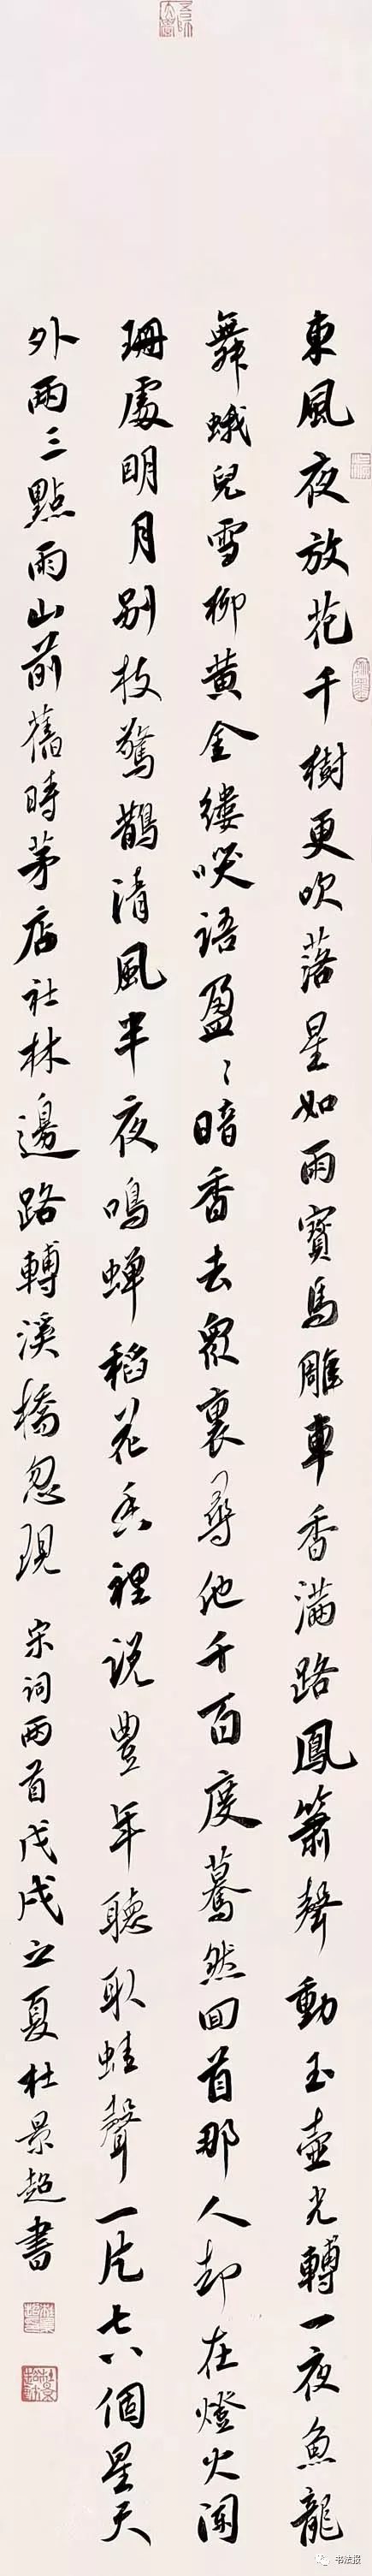 東風夜放花千樹更吹落星如雨寶馬雕車香滿路鳳簫聲動玉壺光轉一夜魚龍
舞蛾兒雪柳黃金縷咲語盈々暗香去衆裏尋他千百度驀然回首那人却在燈火闌
珊處明月别枝驚鵲清風半夜鳴蟬稻花香裡説豐年聽取蛙聲一片七八個星天
外兩三點雨山前舊時茅店社林邊路轉溪橋忽現 宋詞兩首戊戌之夏杜景超書
书法报